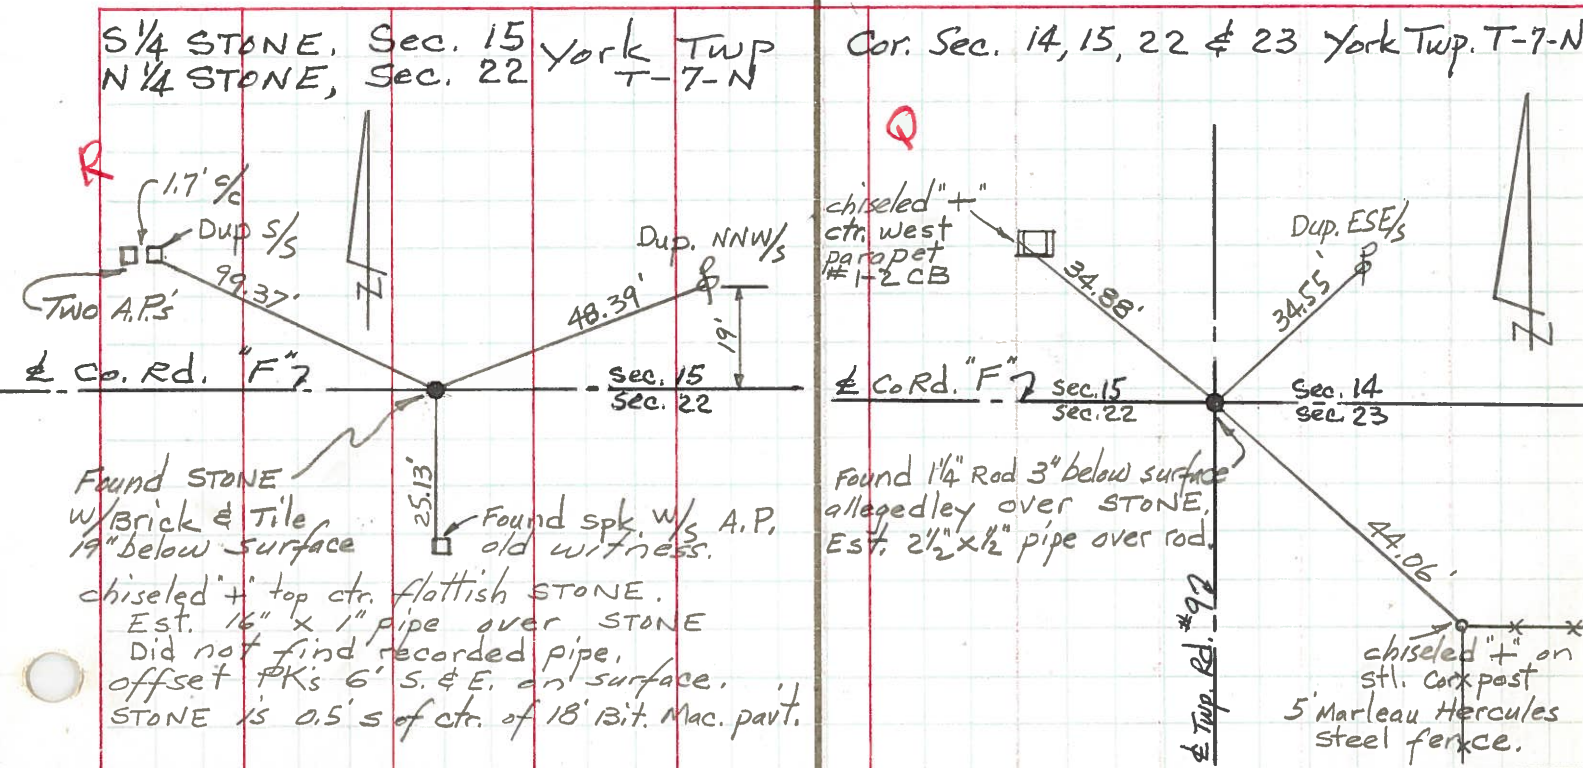 S 1/4 STONE, Sec. 15 York Twp
N 1/4 STONE, Sec. 22 T-7-N
R
1.7' c/c
Dup S/s
99.37'
Two A.P.'s
N
Dup. NNW/s
48.39'
19'
℄ Co. Rd. "F"
Sec. 15
Sec. 22
25.13'
Found STONE
w/Brick & Tile
19" below surface
Found spk. w/s A.P.
old witness.
chiseled "+" top ctr. flattish STONE.
Est. 16" x 1" pipe over STONE
Did not find recorded pipe.
offset PK's 6' S. & E. on surface.
STONE is 0.5' s of ctr. of 18' Bit. Mac. pav't.
Cor. Sec. 14, 15, 22 & 23 York Twp. T-7-N
Q
chiseled "+"
ctr. west
parapet
#1-2 CB
34.88'
Dup. ESE/s
34.55'
N
℄ Co Rd. "F"
Sec. 15
Sec. 22
Sec. 14
Sec. 23
Found 1¼" Rod 3" below surface
allegedley over STONE.
Est. 2½" x ½" pipe over rod.
44.06'
℄ Twp. Rd. #9
chiseled "+" on
stl. Cor. post
5' Marleau Hercules
steel fence.